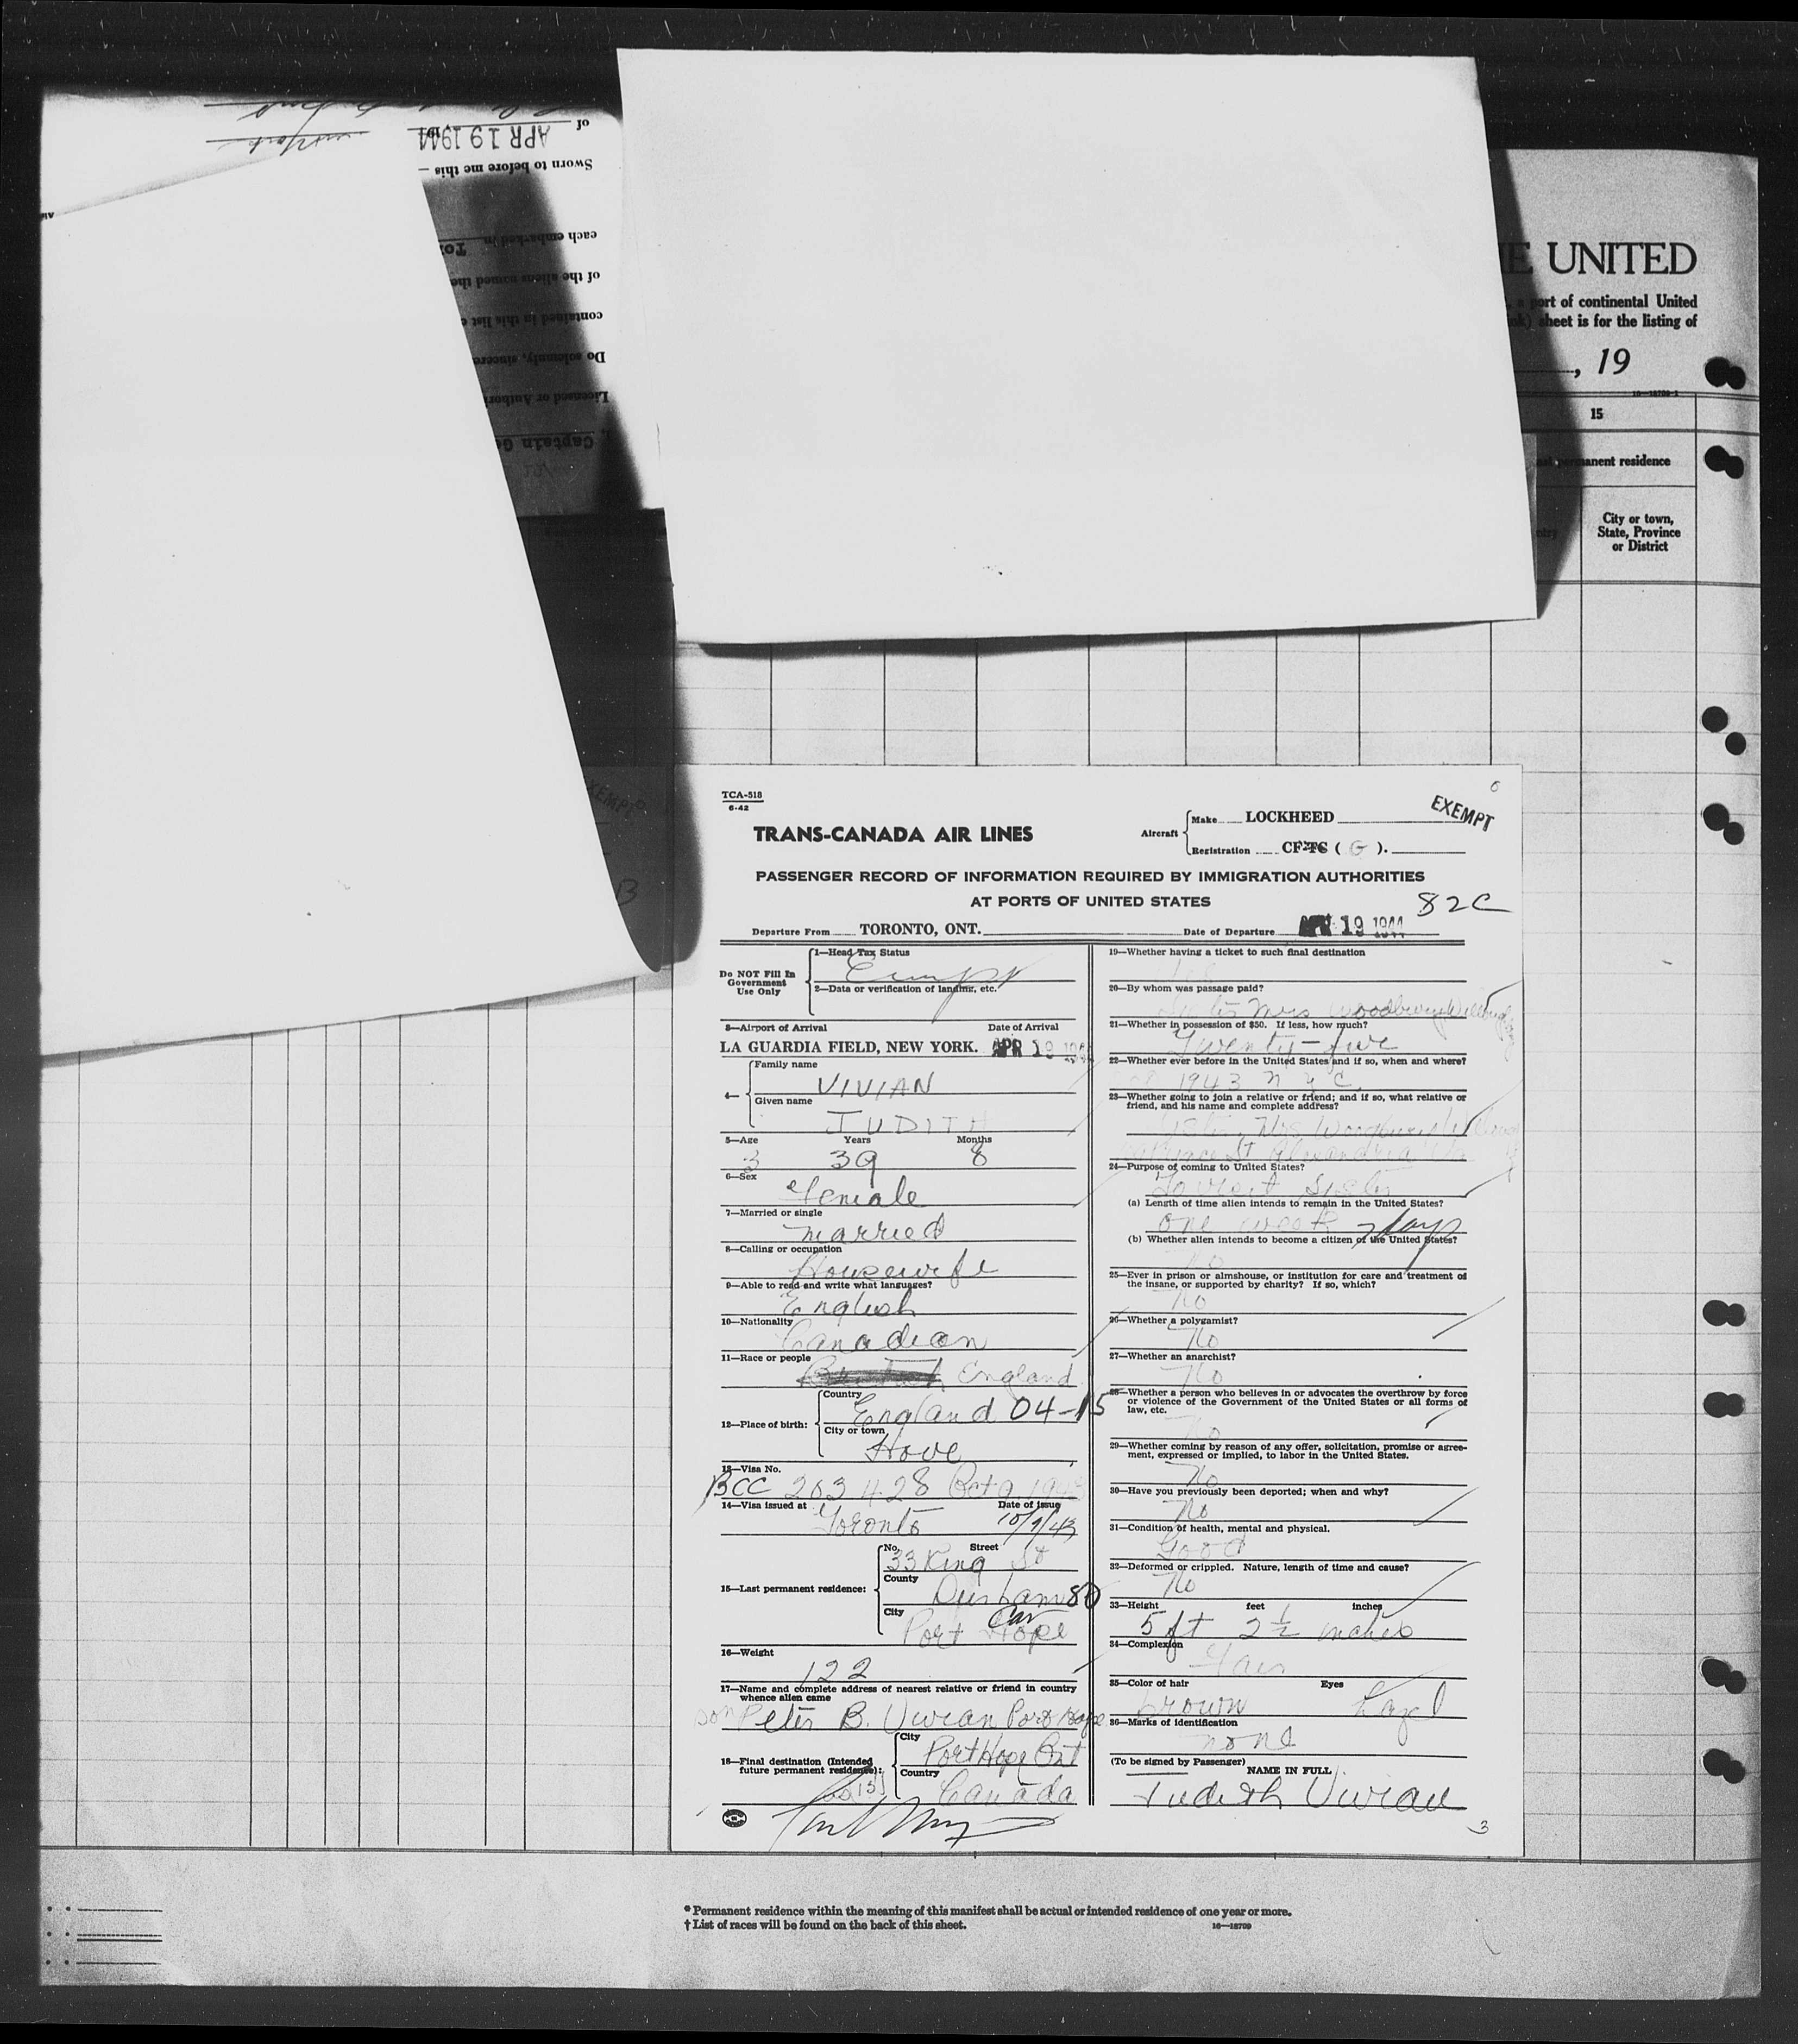 of APR 19 1944
Sworn to before me this
each embarked in To
of the aliens named the
contained in this list
Do solemnly, sincere
Licensed or Authori
Captain G
E UNITED
a port of continental United
sheet is for the listing of
, 19
15
permanent residence
City or town,
State, Province
or District
TCA-518
6-42
TRANS-CANADA AIR LINES
Aircraft
Make LOCKHEED
Registration CF-TC ( G ).
EXEMPT
PASSENGER RECORD OF INFORMATION REQUIRED BY IMMIGRATION AUTHORITIES
AT PORTS OF UNITED STATES
82C
Departure From TORONTO, ONT.
Date of Departure APR 19 1944
Do NOT Fill In
Government
Use Only
1—Head Tax Status
Exempt
2—Data or verification of landing, etc.
3—Airport of Arrival Date of Arrival
LA GUARDIA FIELD, NEW YORK. APR 19 194
4—
Family name
VIVIAN
Given name
JUDITH
5—Age Years Months
3 39 8
6—Sex
Female
7—Married or single
Married
8—Calling or occupation
Housewife
9—Able to read and write what languages?
English
10—Nationality
Canadian
11—Race or people
England
12—Place of birth:
Country
England 04-15
City or town
Hove
13—Visa No.
BCC 203428 Oct 9, 1943
14—Visa issued at Date of issue
Toronto 10/9/43
15—Last permanent residence:
No. Street
33 King St
County
Durham 80
City
Can
Port Hope
16—Weight
122
17—Name and complete address of nearest relative or friend in country
whence alien came
son Peter B. Vivian Port Hope
18—Final destination (Intended
future permanent residence):
City
Port Hope Ont
Country
Canada
19—Whether having a ticket to such final destination
Yes
20—By whom was passage paid?
Sister Mrs Woodbury Willoughby
21—Whether in possession of $50. If less, how much?
Twenty-five
22—Whether ever before in the United States and if so, when and where?
1943 N Y C.
23—Whether going to join a relative or friend; and if so, what relative or
friend, and his name and complete address?
Sister, Mrs Woodbury Willoughby
Prince St Alexandria Va
24—Purpose of coming to United States?
To visit Sister
(a) Length of time alien intends to remain in the United States?
one week 7 days
(b) Whether alien intends to become a citizen of the United States?
No
25—Ever in prison or almshouse, or institution for care and treatment of
the insane, or supported by charity? If so, which?
No
26—Whether a polygamist?
No
27—Whether an anarchist?
No
28—Whether a person who believes in or advocates the overthrow by force
or violence of the Government of the United States or all forms of
law, etc.
No
29—Whether coming by reason of any offer, solicitation, promise or agree-
ment, expressed or implied, to labor in the United States.
No
30—Have you previously been deported; when and why?
No
31—Condition of health, mental and physical.
Good
32—Deformed or crippled. Nature, length of time and cause?
No
33—Height feet inches
5 ft 2 1/2 inches
34—Complexion
Fair
35—Color of hair Eyes
brown hazel
36—Marks of identification
none
(To be signed by Passenger)
NAME IN FULL
Judith Vivian
3
* Permanent residence within the meaning of this manifest shall be actual or intended residence of one year or more.
† List of races will be found on the back of this sheet.
16—18709